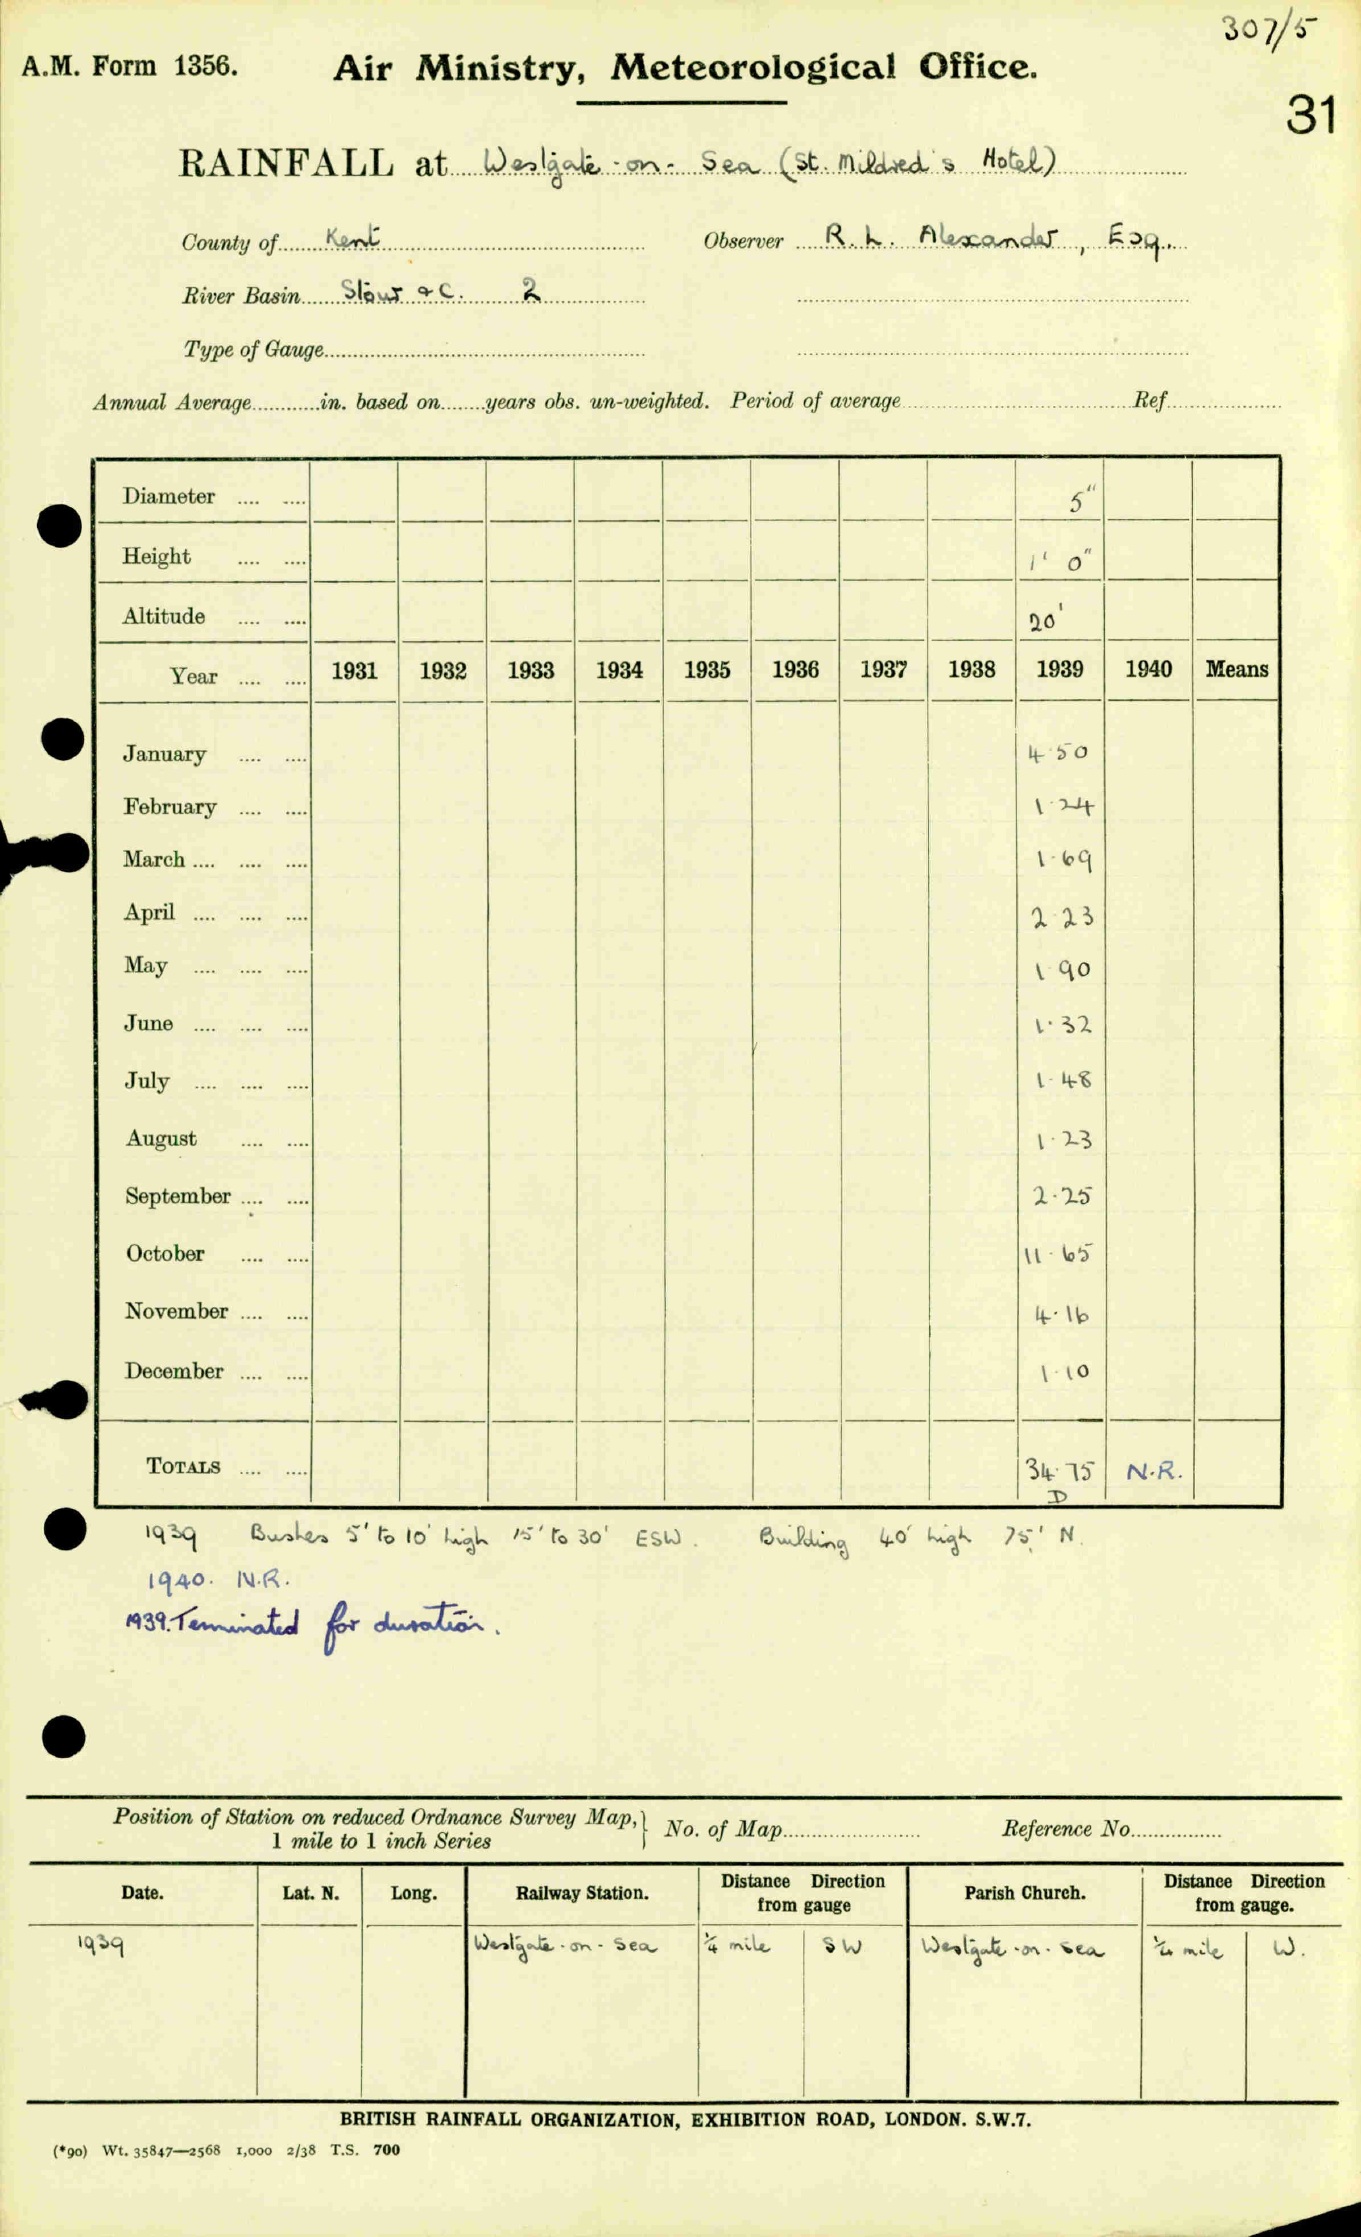 307/5
A.M. Form 1356. Air Ministry, Meteorological Office.
31
RAINFALL at Westgate-on-Sea (St. Mildred's Hotel)
County of Kent Observer R. L. Alexander, Esq.
River Basin Stour &c. 2
Type of Gauge
Annual Average in. based on years obs. un-weighted. Period of average Ref.
Diameter 5"
Height 1' 0"
Altitude 20'
Year 1931 1932 1933 1934 1935 1936 1937 1938 1939 1940 Means
January 4·50
February 1·24
March 1·69
April 2·23
May 1·90
June 1·32
July 1·48
August 1·23
September 2·25
October 11·65
November 4·16
December 1·10
TOTALS 34·75 N.R.
D
1939 Bushes 5' to 10' high 15' to 30' ESW. Building 40' high 75' N.
1940. N.R.
1939. Terminated for duration.
Position of Station on reduced Ordnance Survey Map,} No. of Map Reference No.
1 mile to 1 inch Series
Date. Lat. N. Long. Railway Station. Distance Direction from gauge Parish Church. Distance Direction from gauge.
1939 Westgate-on-Sea ¼ mile SW Westgate-on-Sea ¼ mile W.
BRITISH RAINFALL ORGANIZATION, EXHIBITION ROAD, LONDON. S.W.7.
(*90) Wt. 35847—2568 1,000 2/38 T.S. 700